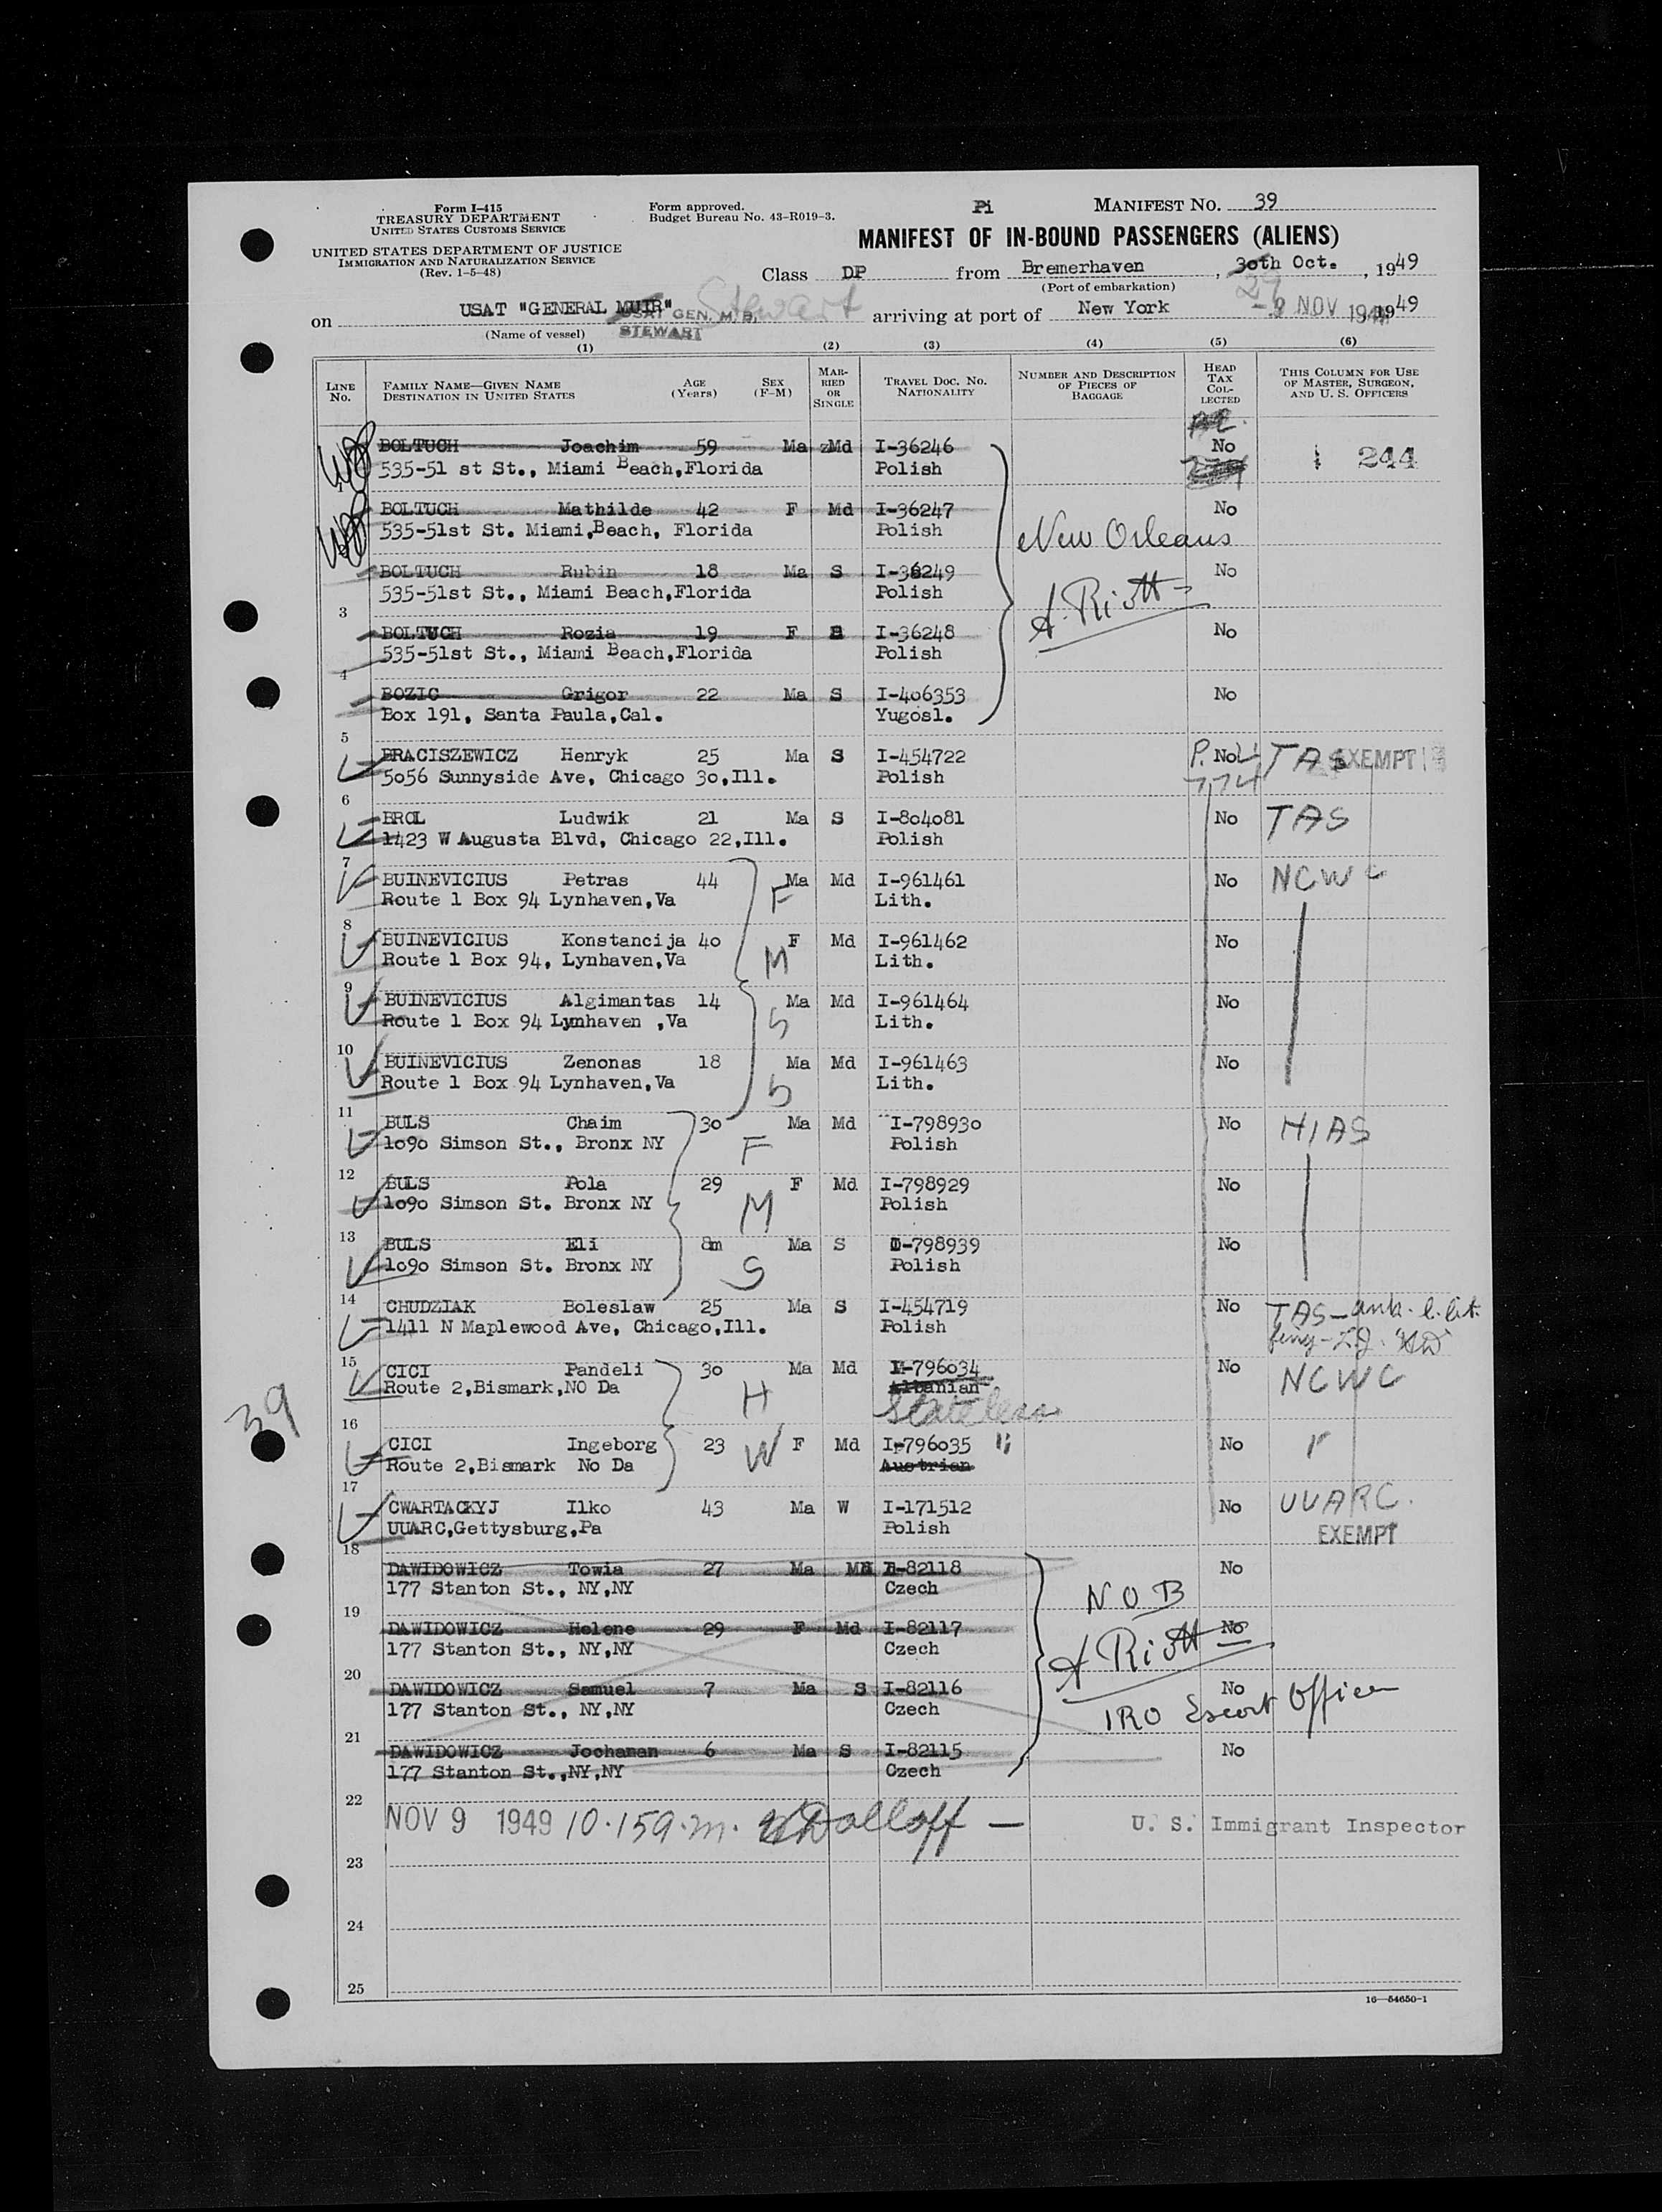 Form I-415
TREASURY DEPARTMENT
UNITED STATES CUSTOMS SERVICE
UNITED STATES DEPARTMENT OF JUSTICE
IMMIGRATION AND NATURALIZATION SERVICE
(Rev. 1-5-48)
Form approved.
Budget Bureau No. 43-R019-3.
Pi MANIFEST NO. 39
MANIFEST OF IN-BOUND PASSENGERS (ALIENS)
Class DP from Bremerhaven, 30th Oct., 1949
(Port of embarkation) 29
on USAT "GENERAL MUIR" USAT GEN. M. B. STEWART Stewart arriving at port of New York NOV 1949
(Name of vessel)
(1) (2) (3) (4) (5) (6)
LINE No. FAMILY NAME—GIVEN NAME DESTINATION IN UNITED STATES AGE (Years) SEX (F-M) MARRIED OR SINGLE TRAVEL DOC. NO. NATIONALITY NUMBER AND DESCRIPTION OF PIECES OF BAGGAGE HEAD TAX COLLECTED THIS COLUMN FOR USE OF MASTER, SURGEON, AND U. S. OFFICERS
BOLTUCH Joachim 59 Ma Md I-36246 No 244
535-51 st St., Miami Beach,Florida Polish
BOLTUCH Mathilde 42 F Md I-36247 No
535-51st St. Miami,Beach, Florida Polish
New Orleans
BOLTUCH Rubin 18 Ma S I-36249 No
535-51st St., Miami Beach,Florida Polish
3
A. Riott
BOLTUCH Rozia 19 F S I-36248 No
535-51st St., Miami Beach,Florida Polish
4
BOZIC Grigor 22 Ma S I-406353 No
Box 191, Santa Paula,Cal. Yugosl.
5
BRACISZEWICZ Henryk 25 Ma S I-454722 No TAS EXEMPT
5056 Sunnyside Ave, Chicago 30,Ill. Polish
6
BROL Ludwik 21 Ma S I-804081 No TAS
1423 W Augusta Blvd, Chicago 22,Ill. Polish
7
BUINEVICIUS Petras 44 Ma Md I-961461 No NCWC
Route 1 Box 94 Lynhaven,Va F Lith.
8
BUINEVICIUS Konstancija 40 F Md I-961462 No
Route 1 Box 94, Lynhaven,Va M Lith.
9
BUINEVICIUS Algimantas 14 Ma Md I-961464 No
Route 1 Box 94 Lynhaven ,Va S Lith.
10
BUINEVICIUS Zenonas 18 Ma Md I-961463 No
Route 1 Box 94 Lynhaven,Va S Lith.
11
BULS Chaim 30 Ma Md I-798930 No HIAS
1090 Simson St., Bronx NY F Polish
12
BULS Pola 29 F Md I-798929 No
1090 Simson St. Bronx NY M Polish
13
BULS Eli 8m Ma S I-798939 No
1090 Simson St. Bronx NY S Polish
14
CHUDZIAK Boleslaw 25 Ma S I-454719 No TAS
1411 N Maplewood Ave, Chicago,Ill. Polish
15
CICI Pandeli 30 Ma Md I-796034 No NCWC
Route 2,Bismark,NO Da H Albanian
Stateless
39
16
CICI Ingeborg 23 F Md I-796035 " No "
Route 2,Bismark No Da W Austrian
17
CWARTACKYJ Ilko 43 Ma W I-171512 No UUARC.
UUARC,Gettysburg,Pa Polish EXEMPT
18
DAWIDOWICZ Towia 27 Ma Md I-82118 No
177 Stanton St., NY,NY Czech
NOB
19
DAWIDOWICZ Helene 29 F Md I-82117 No
177 Stanton St., NY,NY Czech
A Riott
20
DAWIDOWICZ Samuel 7 Ma S I-82116 No
177 Stanton St., NY,NY Czech
IRO Escort Officer
21
DAWIDOWICZ Jochaman 6 Ma S I-82115 No
177 Stanton St.,NY,NY Czech
22
NOV 9 1949 10.15 a.m. Dolloff — U. S. Immigrant Inspector
23
24
25
16—54650-1